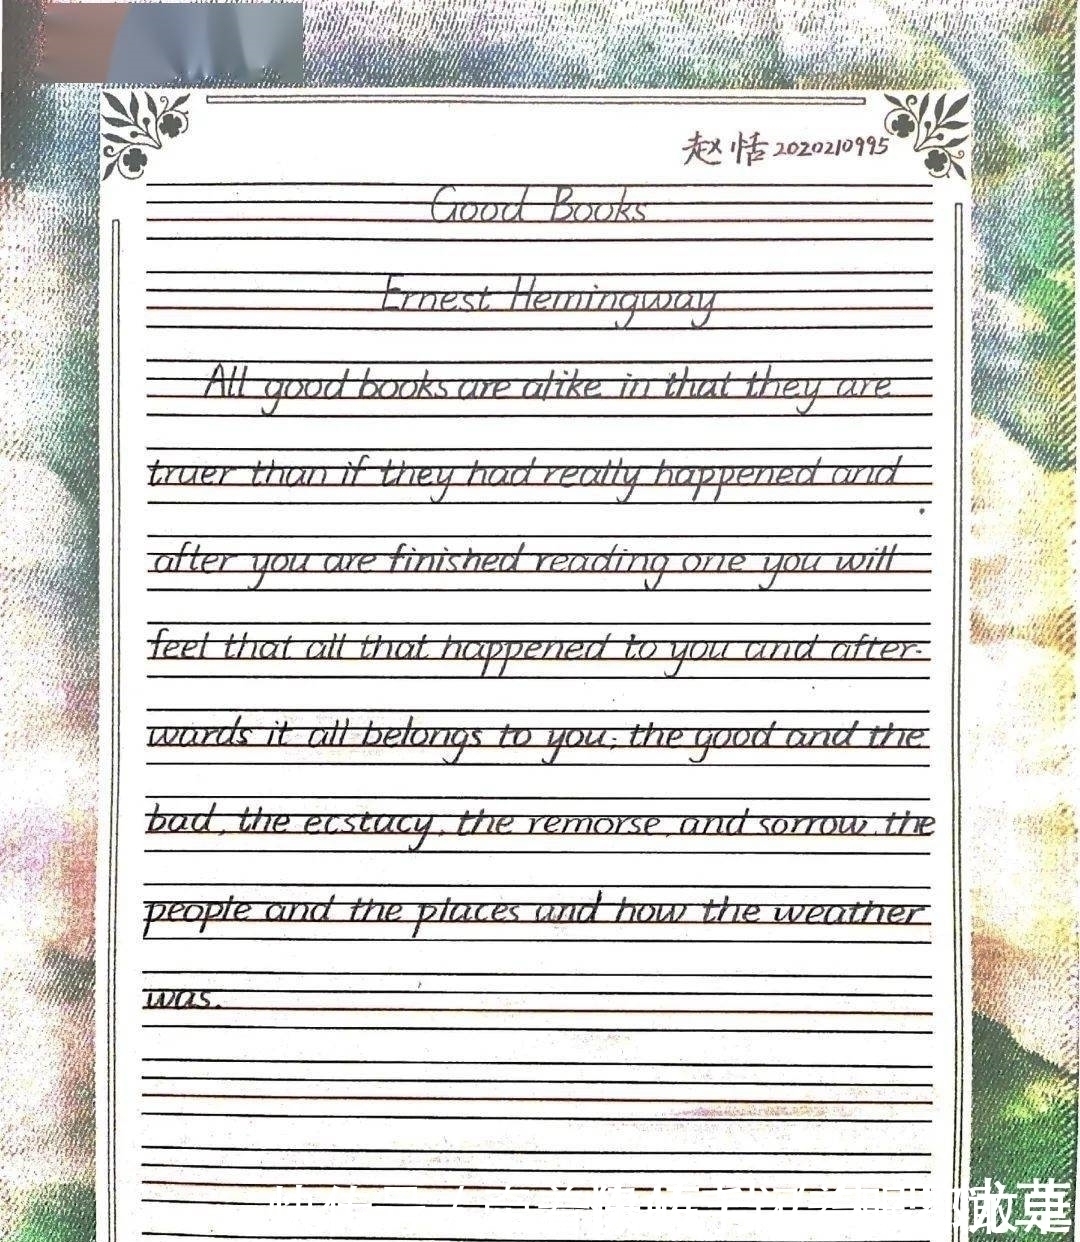 赵恬 2020210995
Good Books
Ernest Hemingway
All good books are alike in that they are
truer than if they had really happened and
after you are finished reading one you will
feel that all that happened to you and after-
wards it all belongs to you; the good and the
bad, the ecstacy, the remorse, and sorrow, the
people and the places and how the weather
was.